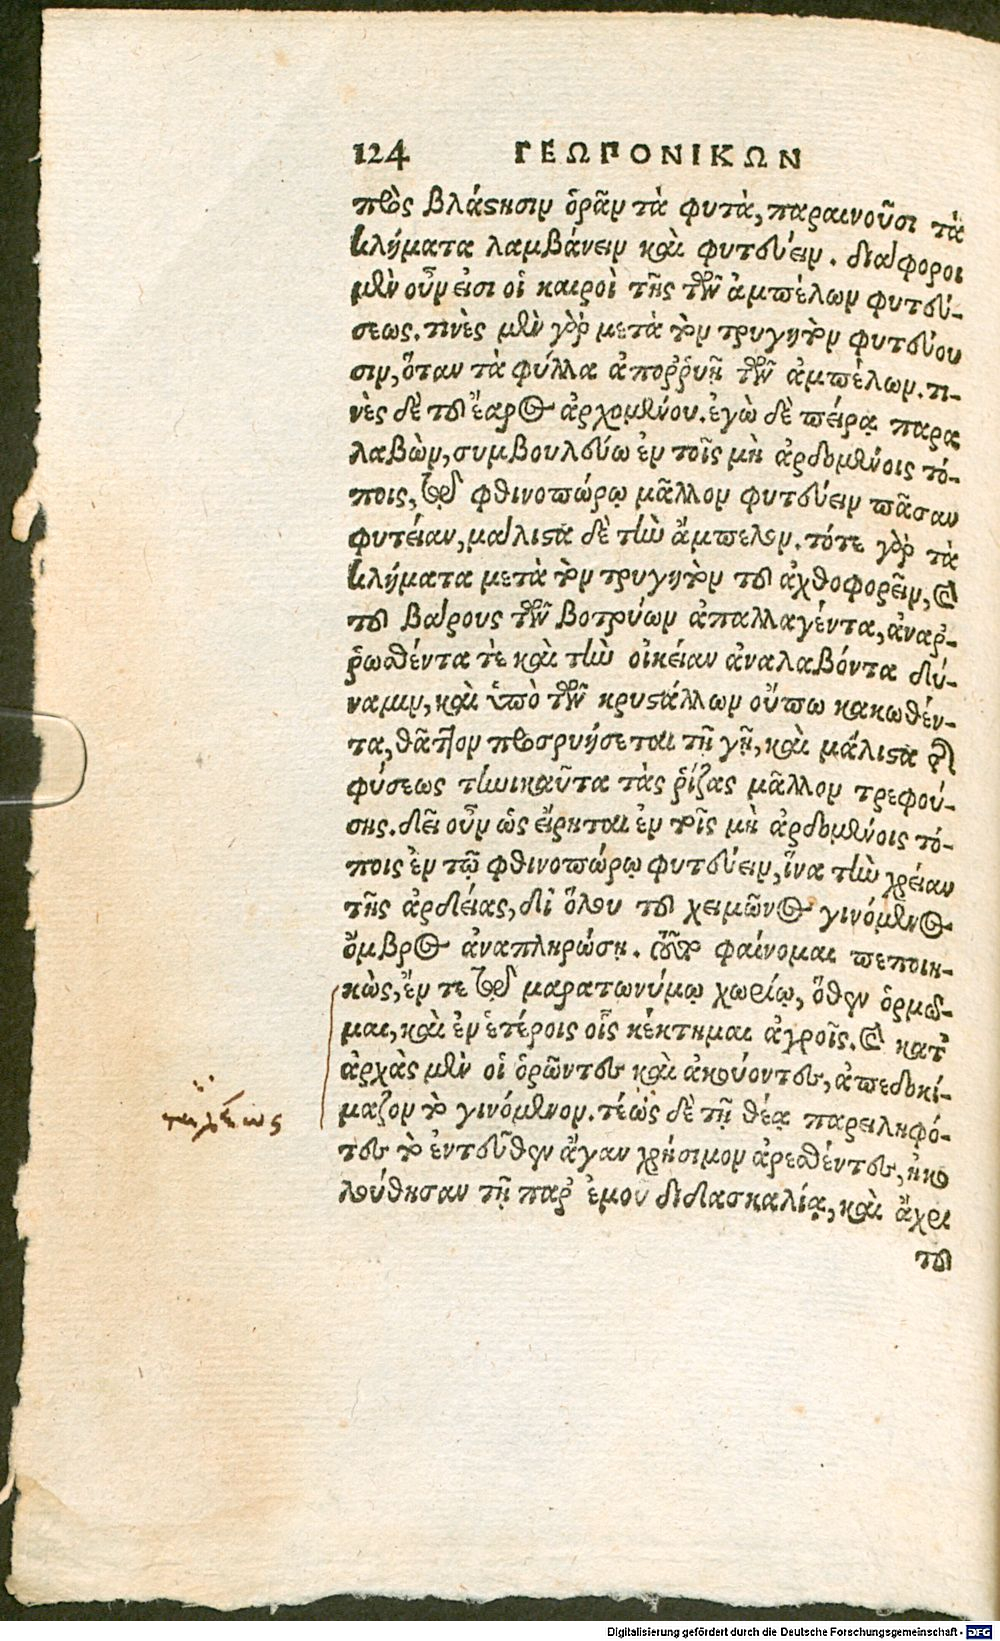 124 ΓΕΩΠΟΝΙΚΩΝ
πρὸς βλάστησιν ὁρᾶν τὰ φυτὰ, παραινοῦσι τὰ
κλήματα λαμβάνειν καὶ φυτεύειν. διάφοροι
μὲν οὖν εἰσι οἱ καιροὶ τῆς τῶν ἀμπέλων φυτεύ-
σεως. τινὲς μὲν γὰρ μετὰ τὸν τρυγητὸν φυτεύου
σιν, ὅταν τὰ φύλλα ἀποῤῥυῇ τῶν ἀμπέλων. τι-
νὲς δὲ τοῦ ἔαρος ἀρχομένου. ἐγὼ δὲ πείρᾳ παρα
λαβὼν, συμβουλεύω ἐν τοῖς μὴ ἀρδομένοις τό-
ποις, τῷ φθινοπώρῳ μᾶλλον φυτεύειν πᾶσαν
φυτείαν, μάλιστα δὲ τὴν ἄμπελον. τότε γὰρ τὰ
κλήματα μετὰ τὸν τρυγητὸν τοῦ ἀχθοφορεῖν, καὶ
τοῦ βάρους τῶν βοτρύων ἀπαλλαγέντα, ἀναῤ-
ῥωσθέντα τὲ καὶ τὴν οἰκείαν ἀναλαβόντα δύ-
ναμιν, καὶ ὑπὸ τῶν κρυστάλλων οὔπω κακωθέν-
τα, θᾶττον προσρυήσεται τῇ γῇ, καὶ μάλιστα τῆς
φύσεως τηνικαῦτα τὰς ῥίζας μᾶλλον τρεφού-
σης. δεῖ οὖν ὡς εἴρηται ἐν τοῖς μὴ ἀρδομένοις τό-
ποις ἐν τῷ φθινοπώρῳ φυτεύειν, ἵνα τὴν χρείαν
τῆς ἀρδείας, δι ὅλου τοῦ χειμῶνος γινόμενος
ὄμβρος ἀναπληρώσῃ. οὕτω φαίνομαι πεποιη-
κὼς, ἔν τε τῷ μαρατωνύμῳ χωρίῳ, ὅθεν ὁρμῶ-
μαι, καὶ ἐν ἑτέροις οἷς κέκτημαι ἀγροῖς. καὶ κατ
ἀρχὰς μὲν οἱ ὁρῶντες καὶ ἀκούοντες, ἀπεδοκί-
μαζον τὸ γινόμενον. τέως δὲ τῇ θέᾳ παρειληφό-
τες τὸ ἐντεῦθεν ἄγαν χρήσιμον ἀρεσθέντες, ἠκο
λούθησαν τῇ παρ ἐμοῦ διδασκαλίᾳ, καὶ ἄχρι
τοῦ
Digitalisierung gefördert durch die Deutsche Forschungsgemeinschaft - DFG